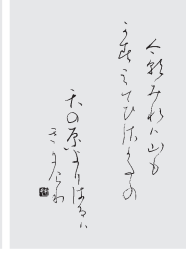 今朝みれハ山も
かすミてひさかたの
天の原よりはるハ
きにけり